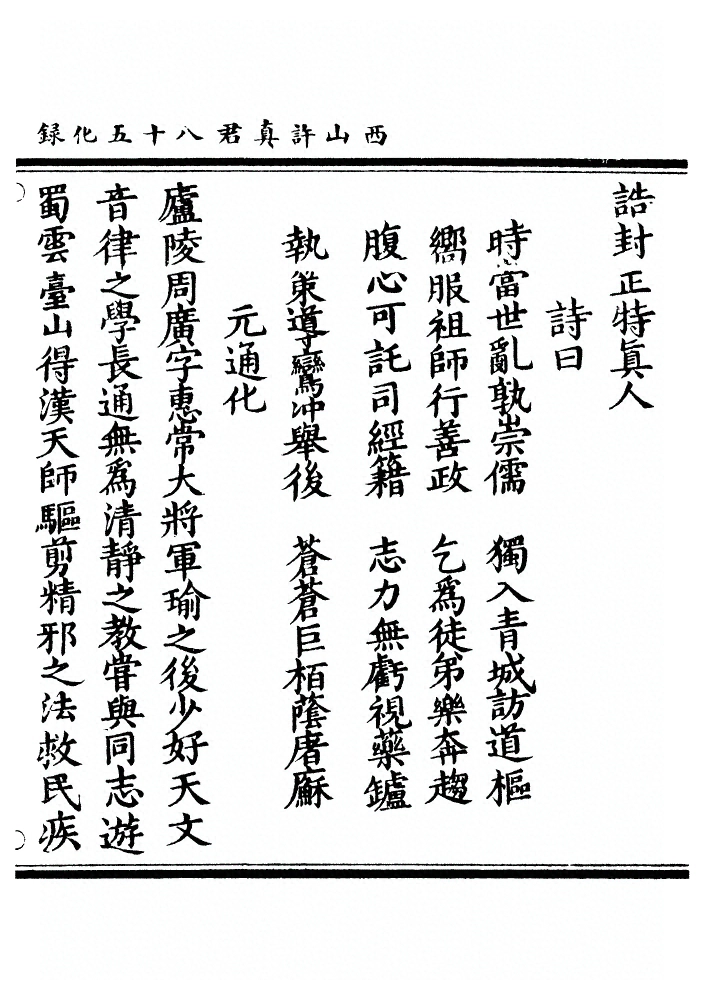 西山許真君八十五化録
誥封正特眞人
詩曰
時當世亂孰崇儒　獨入青城訪道樞
嚮服祖師行善政　乞爲徒弟樂奔趨
腹心可託司經籍　志力無虧視藥鑪
執策導鸞冲舉後　蒼蒼巨栢蔭屠酥
元通化
廬陵周廣字惠常大將軍瑜之後少好天文
音律之學長通無爲清靜之教嘗與同志遊
蜀雲臺山得漢天師驅剪精邪之法救民疾